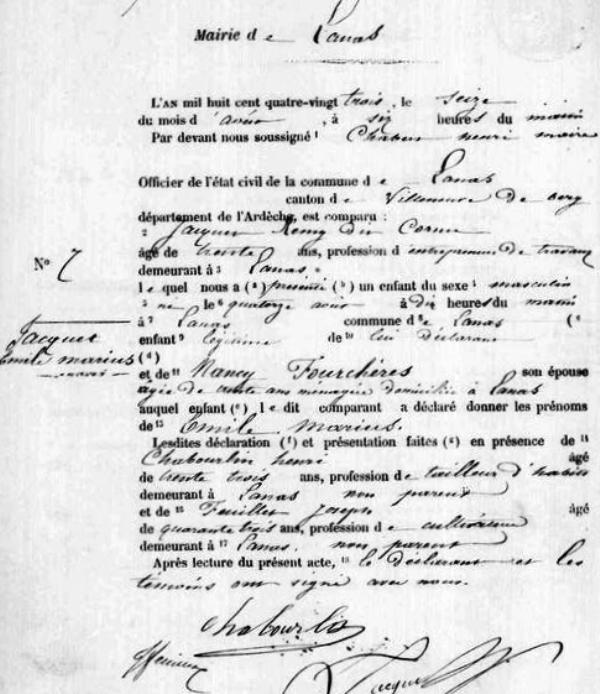 Mairie de Lanas
L'AN mil huit cent quatre-vingt trois, le seize
du mois d'août, à six heures du matin
Par devant nous soussigné ¹ Chabert henri maire
Officier de l'état civil de la commune de Lanas
canton de Villeneuve de berg
département de l'Ardèche, est comparu :
² Jacquet Remy dit Cornu
âgé de trente ans, profession d'entrepreneur de travaux
demeurant à ³ Lanas.
No 7
lequel nous a (ª) présenté (ᵇ) un enfant du sexe ⁴ masculin
⁵ né le ⁶ quatorze août à dix heures du matin
à ⁷ Lanas commune de Lanas (ᶜ
Jacquet
Emile marius
enfant ⁹ légitime de ¹⁰ lui déclarant
(ᵈ)
et de ¹¹ Nancy Fourchères son épouse
âgée de trente ans ménagère domiciliée à Lanas
auquel enfant (ᵉ) le dit comparant a déclaré donner les prénoms
de ¹³ Emile Marius.
Lesdites déclaration (ᶠ) et présentation faites (ᵍ) en présence de ¹⁴
Chabourlin henri âgé
de trente trois ans, profession de tailleur d'habits
demeurant à Lanas non parent
et de ¹⁶ Feuillet Joseph âgé
de quarante trois ans, profession de cultivateur
demeurant à ¹⁷ Lanas, non parent
Après lecture du présent acte, ¹⁸ le déclarant et les
témoins ont signé avec nous.
Chabourlin
Jacquet